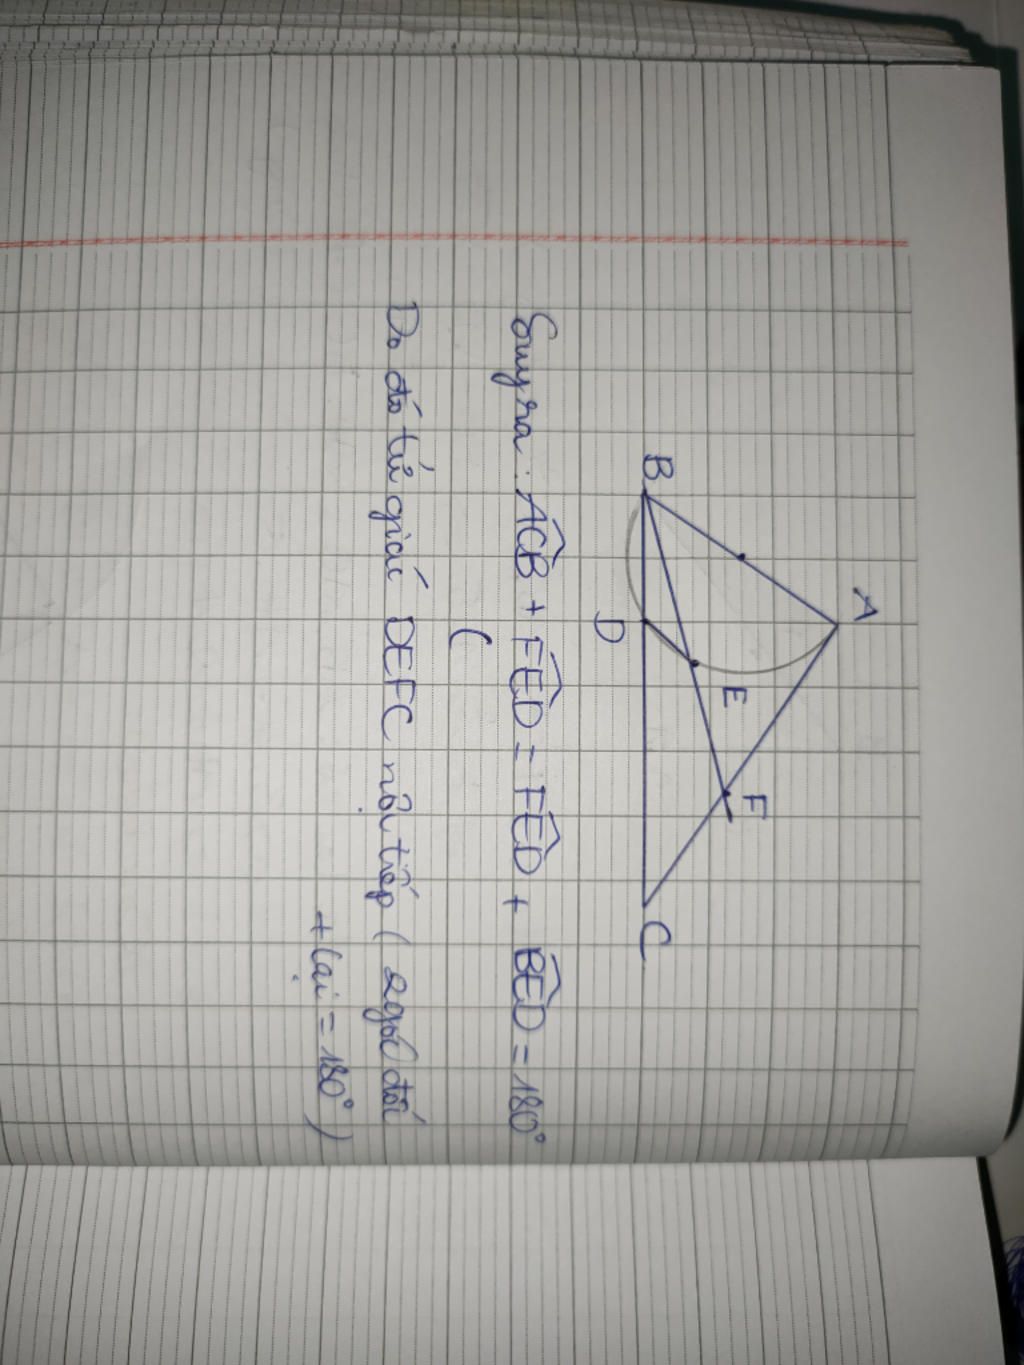 A
B
D
E
F
C
Suy ra : ACB + FED = FED + BED = 180°
(
Do đó tứ giác DEFC nội tiếp ( 2 góc đối
+ lại = 180° )